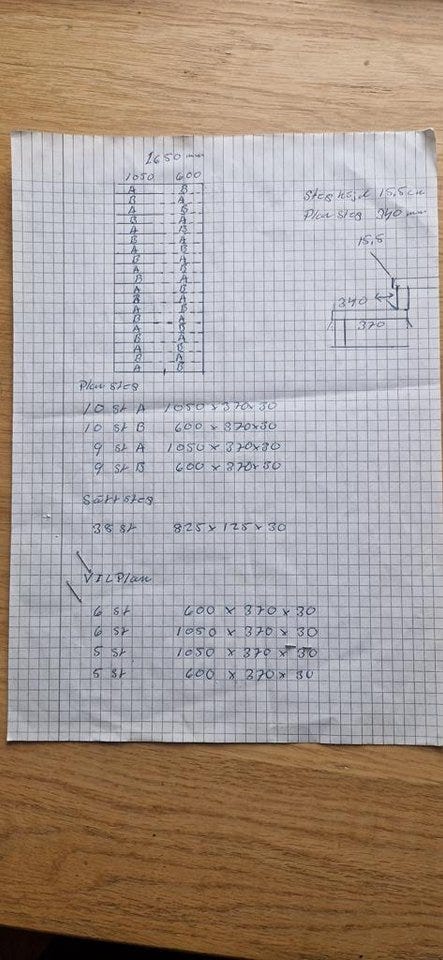 1650 mm
1050 600
A B
B A
A B
B A
A B
B A
A B
B A
A B
B A
A B
B A
A B
B A
A B
B A
A B
B A
A B
Steghöjd 15,5 cm
Plan steg 340 mm
15,5
340
370
Plan steg
10 st A 1050 x 370 x 30
10 st B 600 x 370 x 30
9 st A 1050 x 370 x 30
9 st B 600 x 370 x 30
Sättsteg
38 st 825 x 125 x 30
VILPlan
6 st 600 x 370 x 30
6 st 1050 x 370 x 30
5 st 1050 x 370 x 30
5 st 600 x 370 x 30